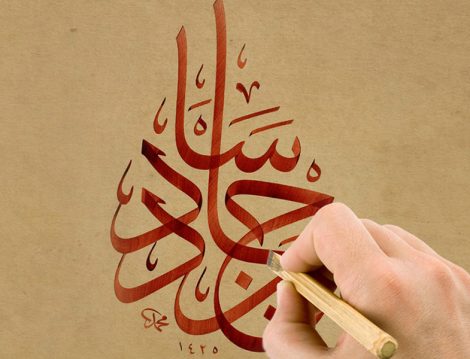 من جاد ساد
محمد
١٤٢٥